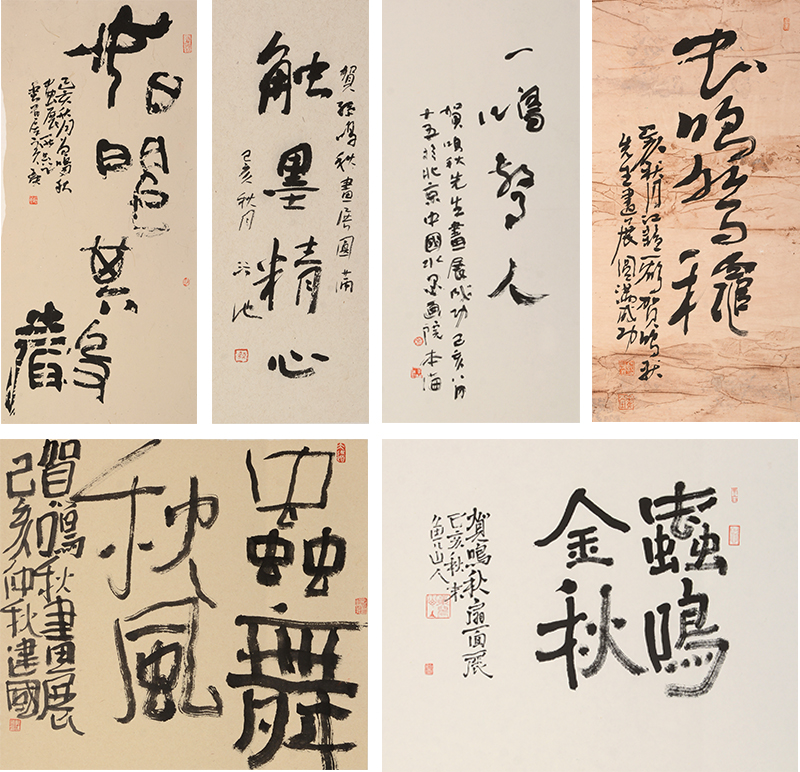 其
己亥秋月为鳴秋
触墨精心
賀鳴秋畫展圓滿
己亥秋月
一鳴驚人
賀鳴秋先生畫展成功己亥八月
十五於北京中國水墨画院本海
虫鳴驚龝
己亥秋月賀鳴秋
先生畫展圆满成功
蟲舞
秋風
賀鳴秋畫展
己亥仲秋建國
蟲鳴
金秋
賀鳴秋扇面展
己亥秋末
魚山人